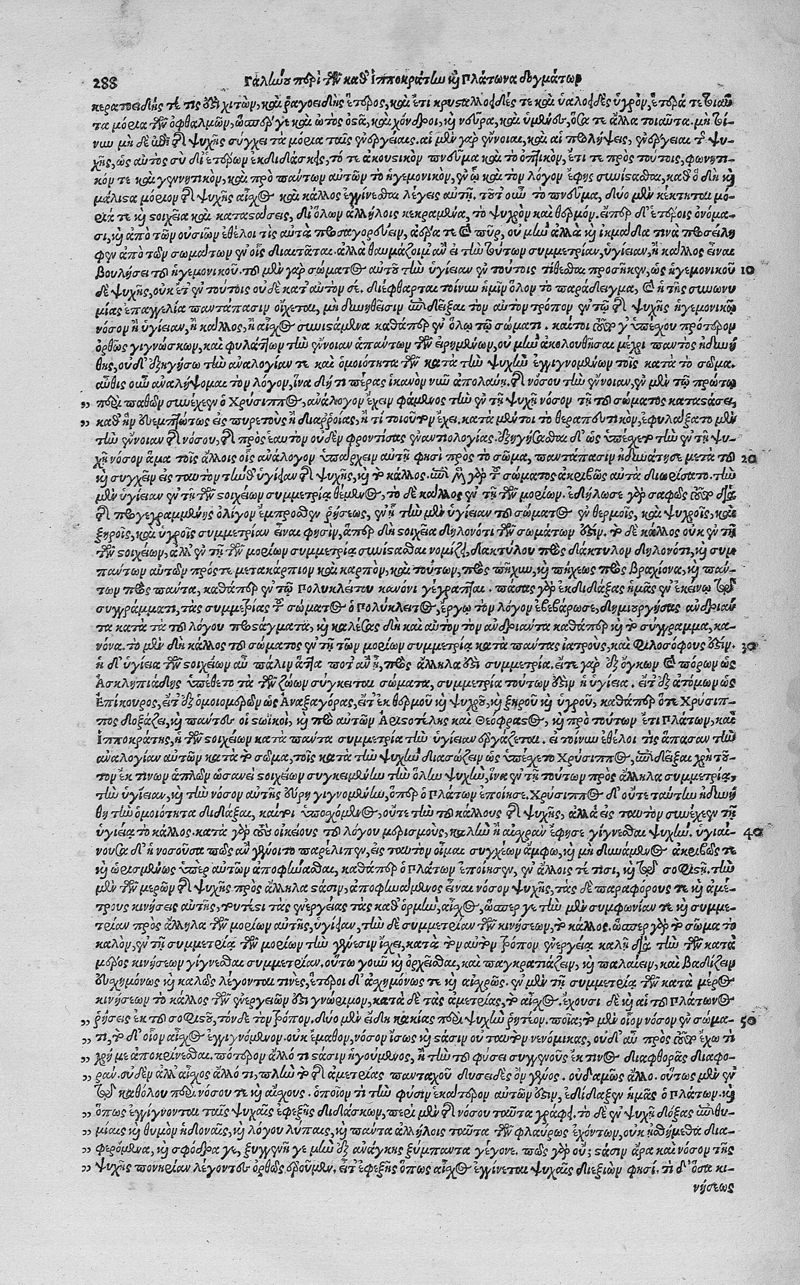 288 Γαλίωοῦ περὶ τῶν καθ' Ἱπποκράτίω καὶ Πλάτωνα δογμάτων
κερατοειδής τέ τις ὅδε χιτών, καὶ ῥαγοειδὴς ἕτερος, καὶ ἔτι κρυσταλλοειδές τε καὶ ὑαλοειδὲς ὑγρόν, ἕτερά τε τοιαῦ-
τα μόρια τῶν ὀφθαλμῶν, ὥσπερ γε καὶ ὠτὸς ὀστᾶ, καὶ χόνδροι, καὶ νεῦρα, καὶ ὑμένες, ὅσα τε ἄλλα τοιαῦτα. μὴ τοί-
νυν μηδὲ ἐπὶ τῆς ψυχῆς σύγχει τὰ μόρια ταῖς ἐνεργείαις. αἱ μὲν γὰρ ἔννοιαι, καὶ αἱ προλήψεις, ἐνέργειαι τῆς ψυ-
χῆς, ὡς αὐτὸς σὺ δι' ἑτέρων ἐκδιδάσκεις, τό τε ἀκουστικὸν πνεῦμα καὶ τὸ ὀπτικόν, ἔτι τε πρὸς τούτοις, φωνητι-
κόν τε καὶ γεννητικόν, καὶ πρὸ πάντων αὐτῶν τὸ ἡγεμονικόν, ἐν ᾧ καὶ τὸν λόγον ἔφης συνίστασθαι, καθ' ὃ δὴ καὶ
μάλιστα μόριον τῆς ψυχῆς αἶσχος καὶ κάλλος ἐγγίνεσθαι λέγεις αὐτῇ. τοῦτ' οὖν τὸ πνεῦμα, δύο μὲν κέκτηται μό-
ριά τε καὶ στοιχεῖα καὶ καταστάσεις, δι' ὅλων ἀλλήλοις κεκραμένα, τὸ ψυχρὸν καὶ θερμόν. εἴπερ δ' ἑτέροις ὀνόμα-
σι, καὶ ἀπὸ τῶν οὐσιῶν ἐθέλοι τις αὐτὰ προσαγορεύειν, ἀέρα τε καὶ πῦρ, οὐ μὴν ἀλλὰ καὶ ἰκμάδα τινὰ προσείλη-
φεν ἀπὸ τῶν σωμάτων ἐν οἷς διαιτᾶται. ἀλλὰ θαυμάζοιμ' ἂν εἰ τὴν τούτων συμμετρίαν, ὑγίειαν, ἢ κάλλος εἶναι
βουλήσει τοῦ ἡγεμονικοῦ. τοῦ μὲν γὰρ σώματος αὐτοῦ τὴν ὑγίειαν ἐν τούτοις τίθεσθαι προσῆκεν, ὡς ἡγεμονικοῦ 10
δὲ ψυχῆς, οὐκ ἔτ' ἐν τούτοις οὐδὲ κατ' αὐτόν σε. διέφθαρται τοίνυν ἡμῖν ὅλον τὸ παράδειγμα, καὶ ἡ τῆς συνωνυ-
μίας ἐπαγγελία παντάπασιν οἴχεται, μὴ δυνηθεῖσιν ἐπιδεῖξαι τὸν αὐτὸν τρόπον ἐν τῷ τῆς ψυχῆς ἡγεμονικῷ
νόσον ἢ ὑγίειαν, ἢ κάλλος, ἢ αἶσχος συνιστάμενα καθάπερ ἐν ὅλῳ τῷ σώματι. καίτοι τοῦτό γ' ὑπέχου πρότερον
ὀρθῶς γιγνώσκων, καὶ φυλάττων τὴν ἔννοιαν ἁπάντων τῶν εἰρημένων, οὐ μὴν ἀκολουθῆσαι μέχρι παντὸς ἠδυνή-
θης, οὐδ' ἐξηγήσω τὴν ἀναλογίαν τε καὶ ὁμοιότητα τῶν κατὰ τὴν ψυχὴν ἐγγιγνομένων τοῖς κατὰ τὸ σῶμα.
αὖθις οὖν ἀναλήψομαι τὸν λόγον, ἵνα δή τι πέρας ἱκανὸν νῦν ἀπολαύῃ. τῆς νόσου τὴν ἔννοιαν, ἐν μὲν τῷ πρώτῳ
„ περὶ παθῶν συνέχεεν ὁ Χρύσιππος, ἀνάλογον ἔχειν φάμενος τὴν ἐν τῇ ψυχῇ νόσον τῇ τοῦ σώματος καταστάσει,
„ καθ' ἣν εὐεμπτώτως εἰς πυρετοὺς ἢ διαρροίας, ἤ τι τοιοῦτον ἔχει. κατὰ μέντοι τὸ θεραπευτικόν, ἐφυλάξατο μὲν
τὴν ἔννοιαν τῆς νόσου, τῆς πρὸς ἑαυτὸν οὐδὲν φροντίσας ἐναντιολογίας. ἐξηγήσασθαι δ' ὡς ὑπέσχετο τὴν ἐν τῇ ψυ-
χῇ νόσον ἅμα τοῖς ἄλλοις οἷς ἀνάλογον ὑπάρχειν αὐτῇ φησὶ πρὸς τὸ σῶμα, παντάπασιν ἠδυνάτησε μετὰ τοῦ 20
καὶ συγχεῖν εἰς ταὐτὸν τήν θ' ὑγίειαν τῆς ψυχῆς, καὶ τὸ κάλλος. ἐπὶ μὲν γὰρ τοῦ σώματος ἀκριβῶς αὐτὰ διωρίσατο. τὴν
μὲν ὑγίειαν ἐν τῇ τῶν στοιχείων συμμετρίᾳ θέμενος, τὸ δὲ κάλλος ἐν τῇ τῶν μορίων. ἐδήλωσε γὰρ σαφῶς τοῦτο διὰ
τῆς προγεγραμμένης ὀλίγον ἔμπροσθεν ῥήσεως, ἐν ᾗ τὴν μὲν ὑγίειαν τοῦ σώματος ἐν θερμοῖς, καὶ ψυχροῖς, καὶ
ξηροῖς, καὶ ὑγροῖς συμμετρίαν εἶναί φησιν, ἅπερ δὴ στοιχεῖα δηλονότι τῶν σωμάτων ἐστίν. τὸ δὲ κάλλος οὐκ ἐν τῇ
τῶν στοιχείων, ἀλλ' ἐν τῇ τῶν μορίων συμμετρίᾳ συνίστασθαι νομίζει, δακτύλου πρὸς δάκτυλον δηλονότι, καὶ συμ-
πάντων αὐτῶν πρός τε μετακάρπιον καὶ καρπόν, καὶ τούτων, πρὸς πῆχυν, καὶ πήχεως πρὸς βραχίονα, καὶ πάν-
των πρὸς πάντα, καθάπερ ἐν τῷ Πολυκλείτου κανόνι γέγραπται. πάσας γὰρ ἐκδιδάξας ἡμᾶς ἐν ἐκείνῳ τῷ
συγγράμματι, τὰς συμμετρίας τοῦ σώματος ὁ Πολύκλειτος, ἔργῳ τὸν λόγον ἐβεβαίωσε, δημιουργήσας ἀνδριάν-
τα κατὰ τὰ τοῦ λόγου προστάγματα, καὶ καλέσας δὴ καὶ αὐτὸν τὸν ἀνδριάντα καθάπερ καὶ τὸ σύγγραμμα, κα-
νόνα. τὸ μὲν δὴ κάλλος τοῦ σώματος ἐν τῇ τῶν μορίων συμμετρίᾳ κατὰ πάντας ἰατρούς, καὶ φιλοσόφους ἐστίν. 30
ἡ δ' ὑγίεια τῶν στοιχείων αὖ πάλιν ἅττα ποτ' ἂν ᾖ, πρὸς ἄλληλά ἐστι συμμετρία. εἴτε γὰρ ἐξ ὄγκων καὶ πόρων ὡς
Ἀσκληπιάδης ὑπέθετο τὰ τῶν ζῴων σύγκειται σώματα, συμμετρία τούτων ἐστὶν ἡ ὑγίεια. εἴτ' ἐξ ἀτόμων ὡς
Ἐπίκουρος, εἴτ' ἐξ ὁμοιομερῶν ὡς Ἀναξαγόρας, εἴτ' ἐκ θερμοῦ καὶ ψυχροῦ, καὶ ξηροῦ καὶ ὑγροῦ, καθάπερ ὅτε Χρύσιπ-
πος δοξάζει, καὶ πάντες οἱ στωϊκοί, καὶ πρὸ αὐτῶν Ἀριστοτέλης καὶ Θεόφραστος, καὶ πρὸ τούτων ἔτι Πλάτων, καὶ
Ἱπποκράτης, ἡ τῶν στοιχείων κατὰ πάντα συμμετρία τὴν ὑγίειαν ἐργάζεται. εἰ τοίνυν ἐθέλοι τις ἅπασαν τὴν
ἀναλογίαν αὐτῶν κατὰ τὸ σῶμα, τοῖς κατὰ τὴν ψυχὴν διασώζειν ὡς ὑπέσχετο Χρύσιππος, ἐπιδεῖξαι χρὴ τοῦ-
τον ἐκ τίνων ἁπλῶν ὡσανεὶ στοιχείων συγκειμένην τὴν ὅλην ψυχήν, ἵνα ἐν τῇ τούτων πρὸς ἄλληλα συμμετρίᾳ,
τὴν ὑγίειαν, καὶ τὴν νόσον αὐτῆς εὕρῃ γιγνομένην, ὅπερ ὁ Πλάτων ἐποίησε. Χρύσιππος δ' οὔτε ταύτην ἠδυνή-
θη τὴν ὁμοιότητα διδάξαι, καίτοι ὑποσχόμενος, οὔτε τὴν τοῦ κάλλους τῆς ψυχῆς, ἀλλὰ εἰς ταὐτὸν συνέχεεν τῇ
ὑγιείᾳ τὸ κάλλος. κατὰ γὰρ τοὺς οἰκείους τοῦ λόγου μερισμούς, καλὴν ἢ αἰσχρὰν ἔφησε γίγνεσθαι ψυχήν. ὑγιαί- 40
νουσα δ' ἢ νοσοῦσα πῶς ἂν γένοιτο παρέλιπεν, εἰς ταὐτὸν οἶμαι συγχέων ἄμφω, καὶ μὴ δυνάμενος ἀκριβῶς τε
καὶ ὡρισμένως ὑπὲρ αὐτῶν ἀποφήνασθαι, καθάπερ ὁ Πλάτων ἐποίησεν, ἐν ἄλλοις τέ τισι, καὶ τῷ σοφιστῇ. τὴν
μὲν τῶν μερῶν τῆς ψυχῆς πρὸς ἄλληλα στάσιν, ἀποφηνάμενος εἶναι νόσον ψυχῆς, τὰς δὲ παραφόρους τε καὶ ἀμέ-
τρους κινήσεις αὐτῆς, τουτέστι τὰς ἐνεργείας τὰς καθ' ὁρμήν, αἶσχος, ὥσπερ γε τὴν μὲν συμφωνίαν τε καὶ συμμε-
τρίαν πρὸς ἄλληλα τῶν μορίων αὐτῆς, ὑγίειαν, τὴν δὲ συμμετρίαν τῶν κινήσεων, τὸ κάλλος. ὥσπερ γὰρ τὸ σῶμα τὸ
καλόν, ἐν τῇ συμμετρίᾳ τῶν μορίων τὴν γένεσιν ἴσχει, κατὰ τὸν αὐτὸν τρόπον ἐνέργεια καλὴ διὰ τὴν τῶν κατὰ
μέρος κινήσεων γίγνεσθαι συμμετρίαν. οὕτω γοῦν καὶ ὀρχεῖσθαι, καὶ παγκρατιάζειν, καὶ παλαίειν, καὶ βαδίζειν
εὐσχημόνως καὶ καλῶς λέγονταί τινες, ἕτεροι δ' ἀσχημόνως τε καὶ αἰσχρῶς. ἐν μὲν τῇ συμμετρίᾳ τῶν κατὰ μέρος
κινήσεων τὸ κάλλος τῶν ἐνεργειῶν ἐστὶ γνώριμον, κατὰ δὲ τὰς ἀμετρίας, τὸ αἶσχος. ἔχουσι δὲ καὶ αἱ τοῦ Πλάτωνος
„ ῥήσεις ἐκ τοῦ σοφιστοῦ, τόνδε τὸν τρόπον. δύο μὲν εἴδη κακίας περὶ ψυχὴν ῥητέον. ποῖα; τὸ μὲν οἷον νόσον ἐν σώμα- 50
„ τι, τὸ δ' οἷον αἶσχος ἐγγιγνόμενον. οὐκ ἔμαθον. νόσον ἴσως καὶ στάσιν οὐ ταὐτὸν νενόμικας, οὐδ' αὖ πρὸς τοῦτο ἔχω τί
„ χρή με ἀποκρίνεσθαι. πότερον ἄλλο τι στάσιν ἡγούμενος, ἢ τὴν τοῦ φύσει συγγενοῦς ἔκ τινος διαφθορᾶς διαφο-
„ ράν. οὐδὲν ἀλλ' αἶσχος ἄλλό τι, πλὴν τὸ τῆς ἀμετρίας πανταχοῦ δυσειδὲς ὂν γένος. οὐδαμῶς ἄλλο. οὕτως μὲν ἐν
„ τῷ καθόλου περὶ νόσου τε καὶ αἴσχους. ὁποῖόν τι τὴν φύσιν ἑκάτερον αὐτῶν ἐστίν, ἐδίδαξεν ἡμᾶς ὁ Πλάτων. καὶ
„ ὅπως ἐγγίγνονται ταῖς ψυχαῖς ἐφεξῆς διδάσκων, περὶ μὲν τῆς νόσου ταῦτα γράφει. τὸ δὲ ἐν ψυχῇ δόξας ἐπιθυ-
„ μίαις καὶ θυμὸν ἡδοναῖς, καὶ λόγον λύπαις, καὶ πάντα ἀλλήλοις ταῦτα τῶν φλαύρως ἐχόντων, οὐκ ᾐσθήμεθα δια-
„ φερόμενα, καὶ σφόδρα γε, ξυγγενῆ γε μὴν ἐξ ἀνάγκης ξύμπαντα γέγονε. πῶς γὰρ οὔ; στάσιν ἄρα καὶ νόσον τῆς
„ ψυχῆς πονηρίαν λέγοντες ὀρθῶς ἐροῦμεν. εἶτ' ἐφεξῆς ὅπως αἶσχος ἐγγίνεται ψυχαῖς διεξιών φησί. τί δ' ὅσα κι-
νήσεως